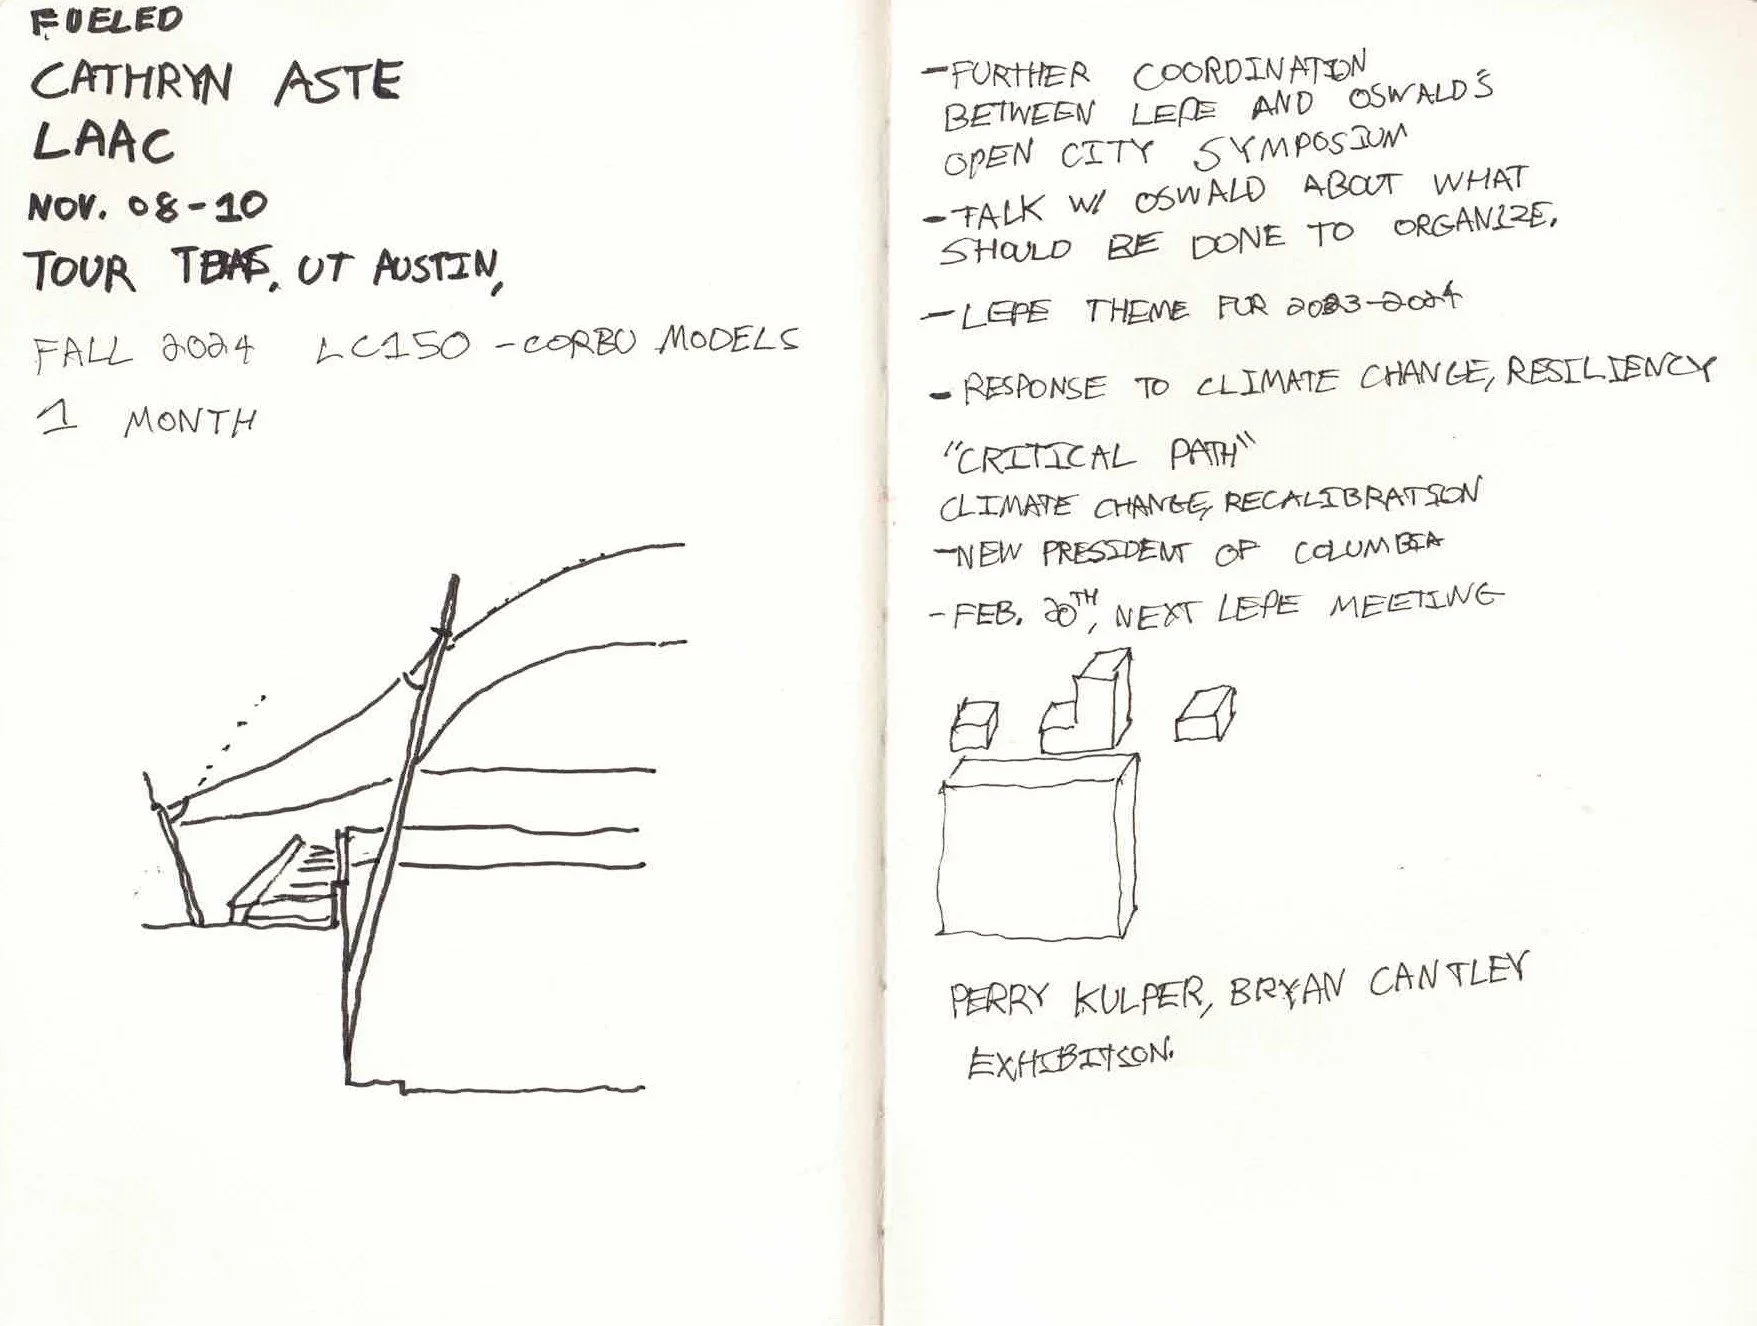 FUELED
CATHRYN ASTE
LAAC
NOV. 08-10
TOUR UT AUSTIN,
FALL 2024 LC150 - CORBU MODELS
1 MONTH
- FURTHER COORDINATION
BETWEEN LEPE AND OSWALD'S
OPEN CITY SYMPOSIUM
- TALK W/ OSWALD ABOUT WHAT
SHOULD BE DONE TO ORGANIZE.
- LEPE THEME FUR 2023-2024
- RESPONSE TO CLIMATE CHANGE, RESILIENCY
"CRITICAL PATH"
CLIMATE CHANGE, RECALIBRATION
- NEW PRESIDENT OF COLUMBIA
- FEB. 20TH, NEXT LEPE MEETING
PERRY KULPER, BRYAN CANTLEY
EXHIBITION.